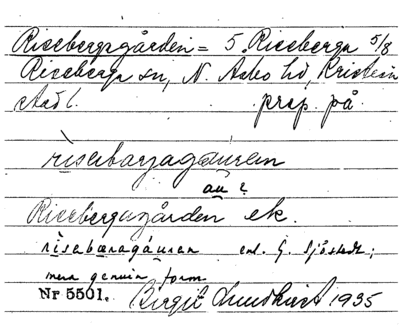 Risebergagården = 5 Riseberga 5/8
Riseberga sn, N. Åsbo hd, Kristian
stad l. prep. på
risabarjagáuren
au ?
Risebergagården ek.
risabæragáuren enl. G. Sjöstedt;
mera genuin form
Nr 5501. Birgit Lundkvist 1935